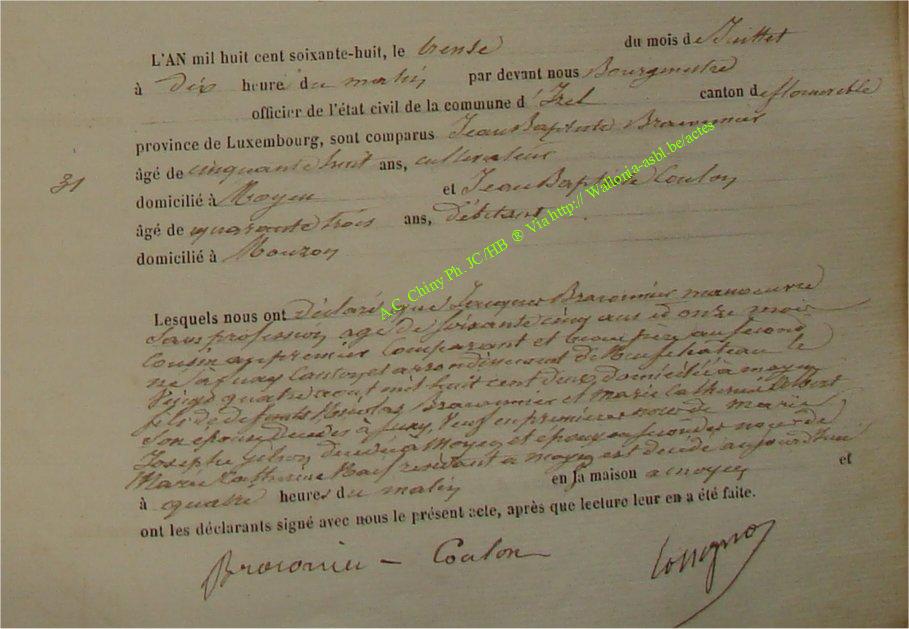 L'AN mil huit cent soixante-huit, le trense du mois de Juillet
à Dix heure du matin par devant nous Bourgmestre
officier de l'état civil de la commune d'Izel canton de florenville
province de Luxembourg, sont comparus Jean Baptiste Braconnier
âgé de cinquante huit ans, cultivateur
31
domicilié à Moyen et Jean Baptiste Coulon
âgé de quarante trois ans, débitant
domicilié à Mouzon
A.C. Chiny Ph. JC/HB ® Via http:// Wallonia-asbl.be/actes
Lesquels nous ont déclaré que Jacques Braconnier manoeuvre
sans profession, agé de soixante cinq ans et onze mois
cousin au premier comparant et beau frère au second
né à Suxy Canton et arrondissement de Neufchâteau le
vingt quatre aout mil huit cent deux, domicilié à moyen
fils de defunts Nicolas Braconnier et marie Catherine
son épouse décédés à Suxy, Veuf en premières noces de marie
Josephe Gilson décédée à Moyen et époux en secondes noces de
Marie Catherine résidant a moyen est décédé aujourd'hui
à quatre heures du matin en sa maison a moyen et
ont les déclarants signé avec nous le présent acte, après que lecture leur en a été faite.
Braconnier - Coulon